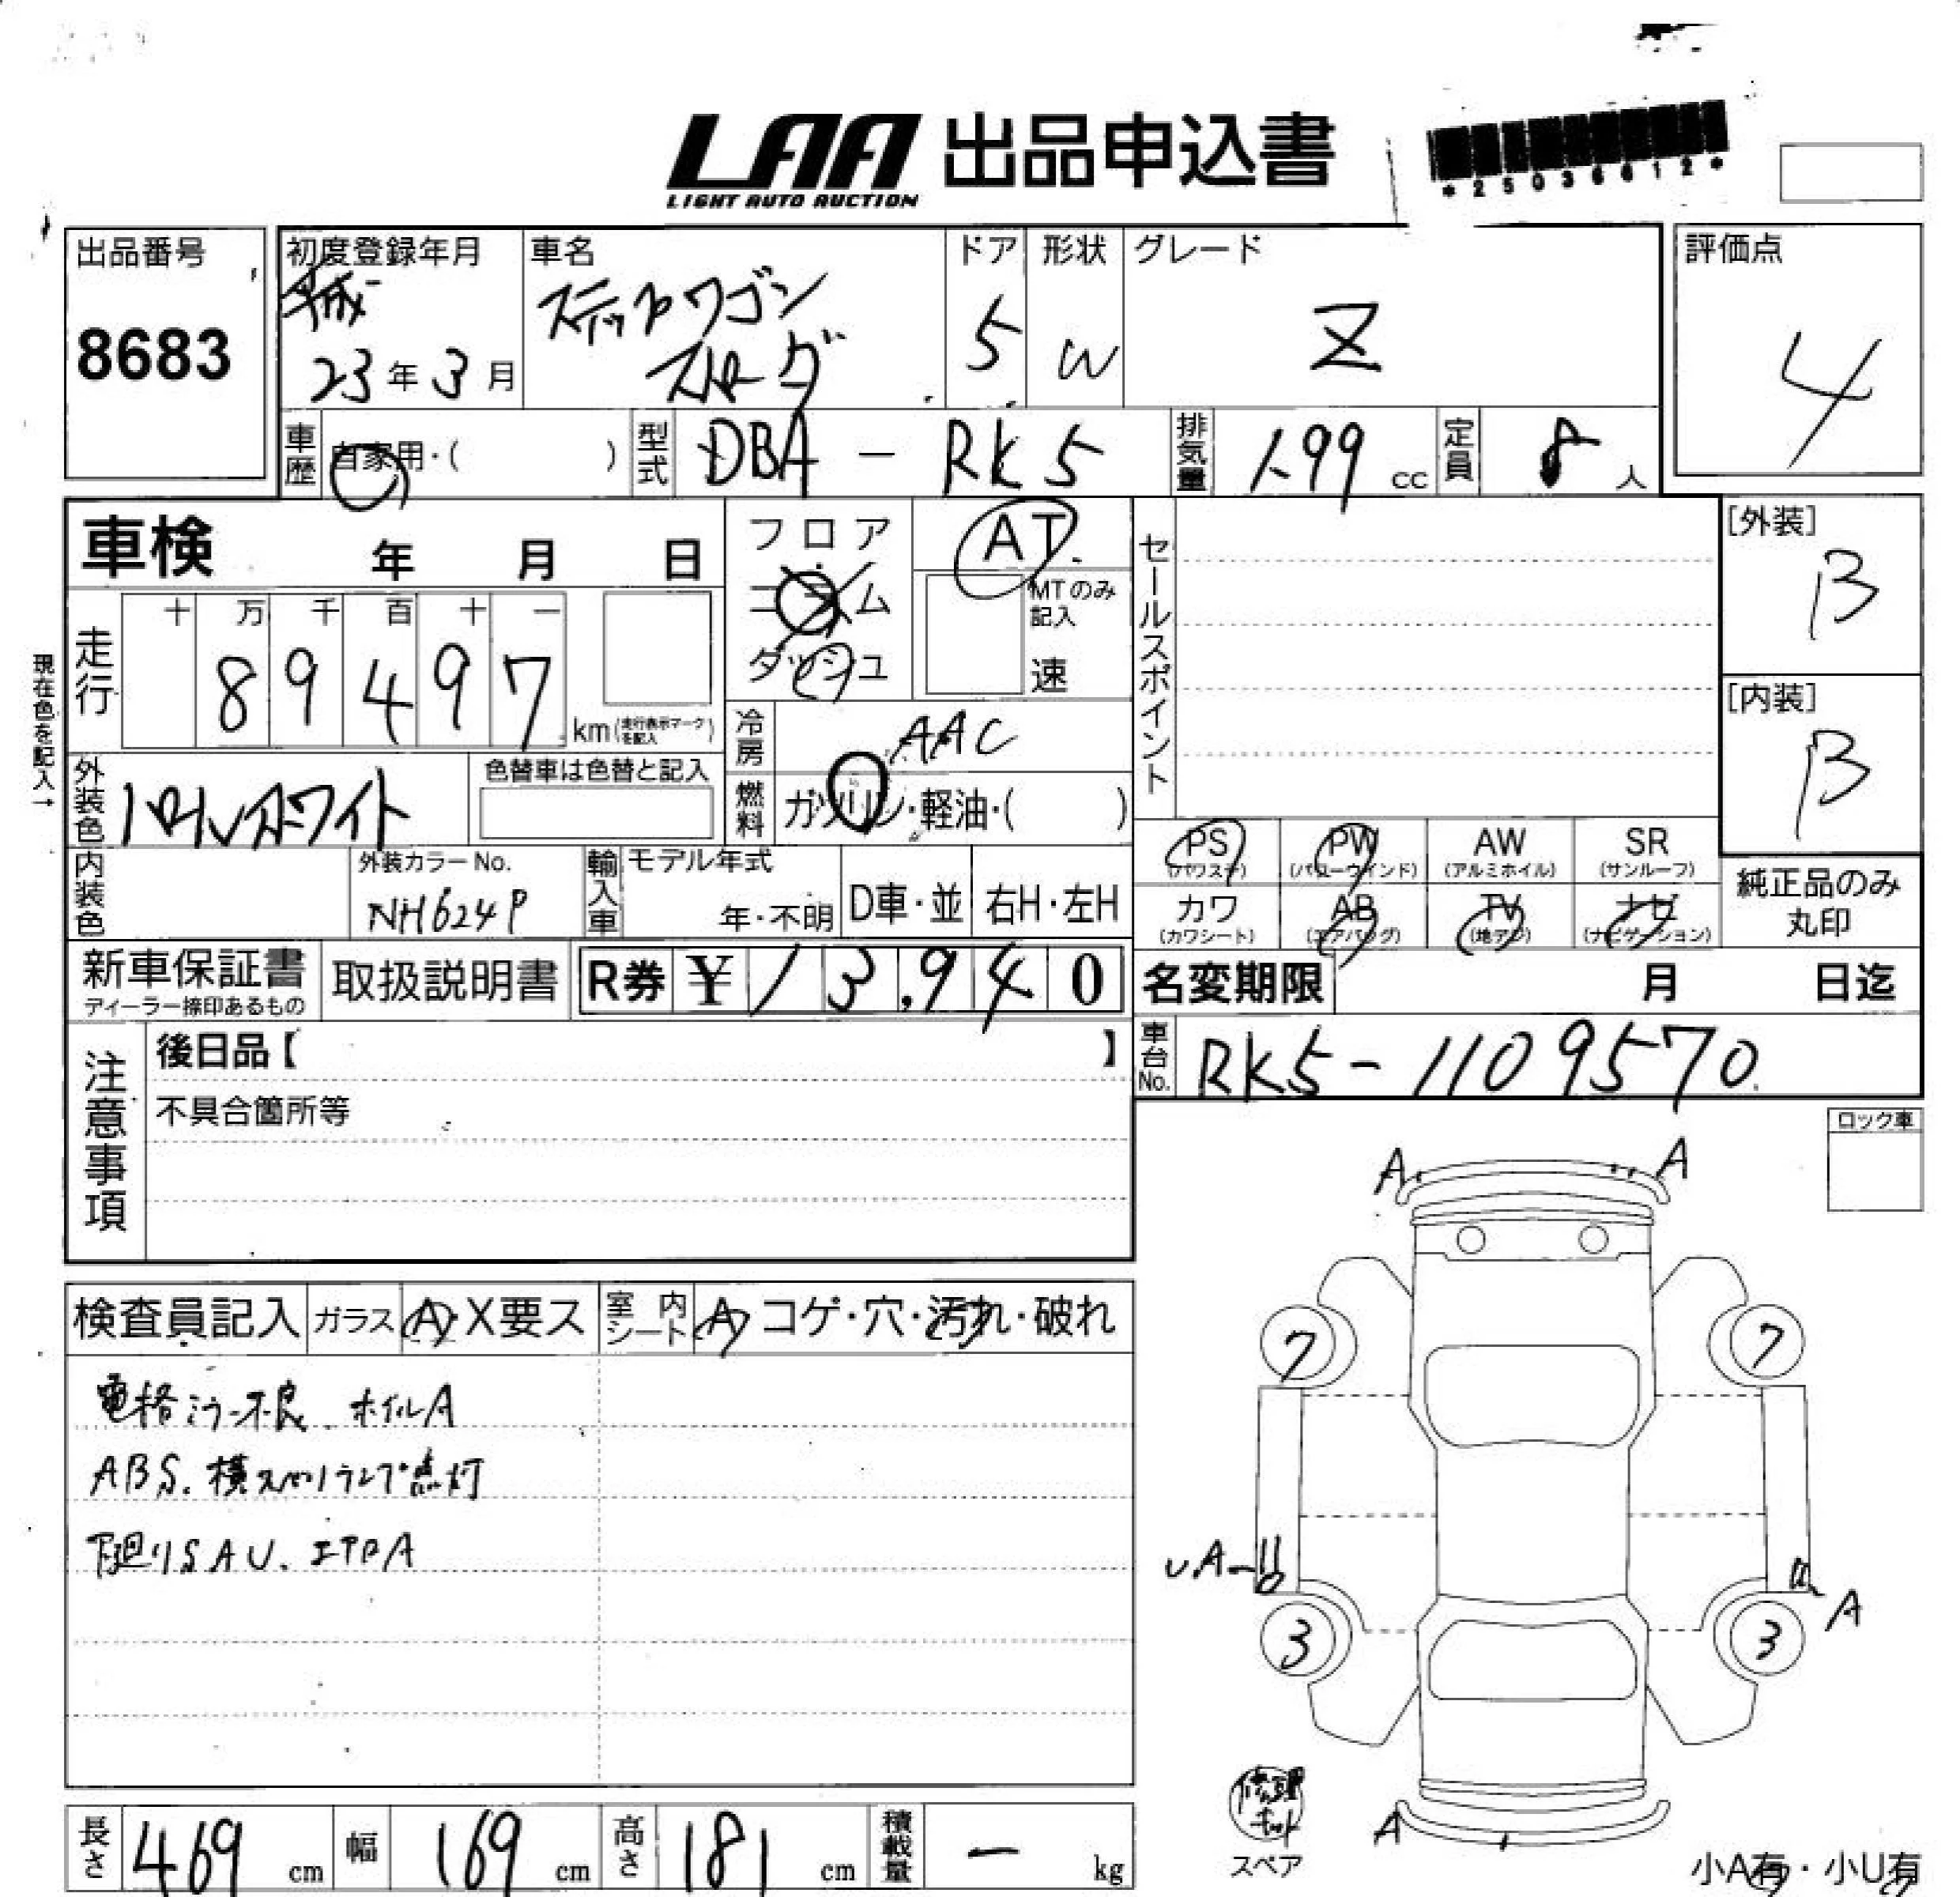 LAA 出品申込書
LIGHT AUTO AUCTION
*25036612*
出品番号
8683
初度登録年月
平成
23年3月
車名
ステップワゴン
スパーダ
ドア
5
形状
W
グレード
Z
評価点
4
車歴
自家用・( )
型式
DBA - RK5
排気量
1.99 cc
定員
8 人
車検 年 月 日
フロア
コラム
ダッシュ
AT
MTのみ記入
速
セールスポイント
[外装]
B
[内装]
B
現在色を記入→
走行
十 万 千 百 十 一
8 9 4 9 7
km(走行表示マークを記入)
冷房
AAC
燃料
ガソリン・軽油・( )
外装色
パールホワイト
色替車は色替と記入
内装色
外装カラーNo.
NH624P
輸入車
モデル年式
年・不明
D車・並
右H・左H
PS
(パワステ)
PW
(パワーウインド)
AW
(アルミホイル)
SR
(サンルーフ)
カワ
(カワシート)
AB
(エアバッグ)
TV
(地デジ)
ナビ
(ナビゲーション)
純正品のみ
丸印
新車保証書
ディーラー捺印あるもの
取扱説明書
R券 ¥ 13,940
名変期限 月 日迄
車台No.
RK5-1109570
注意事項
後日品【 】
不具合箇所等
ロック車
検査員記入
ガラス
A・X要ス
室内シート
A コゲ・穴・汚れ・破れ
電格ミラー不良 ホイルA
ABS.横スベリランプ点灯
下廻りSAU. エアロA
A
A
7
7
UA
A
3
3
A
修理キット
スペア
小A有・小U有
長さ 469 cm
幅 169 cm
高さ 181 cm
積載量 ー kg